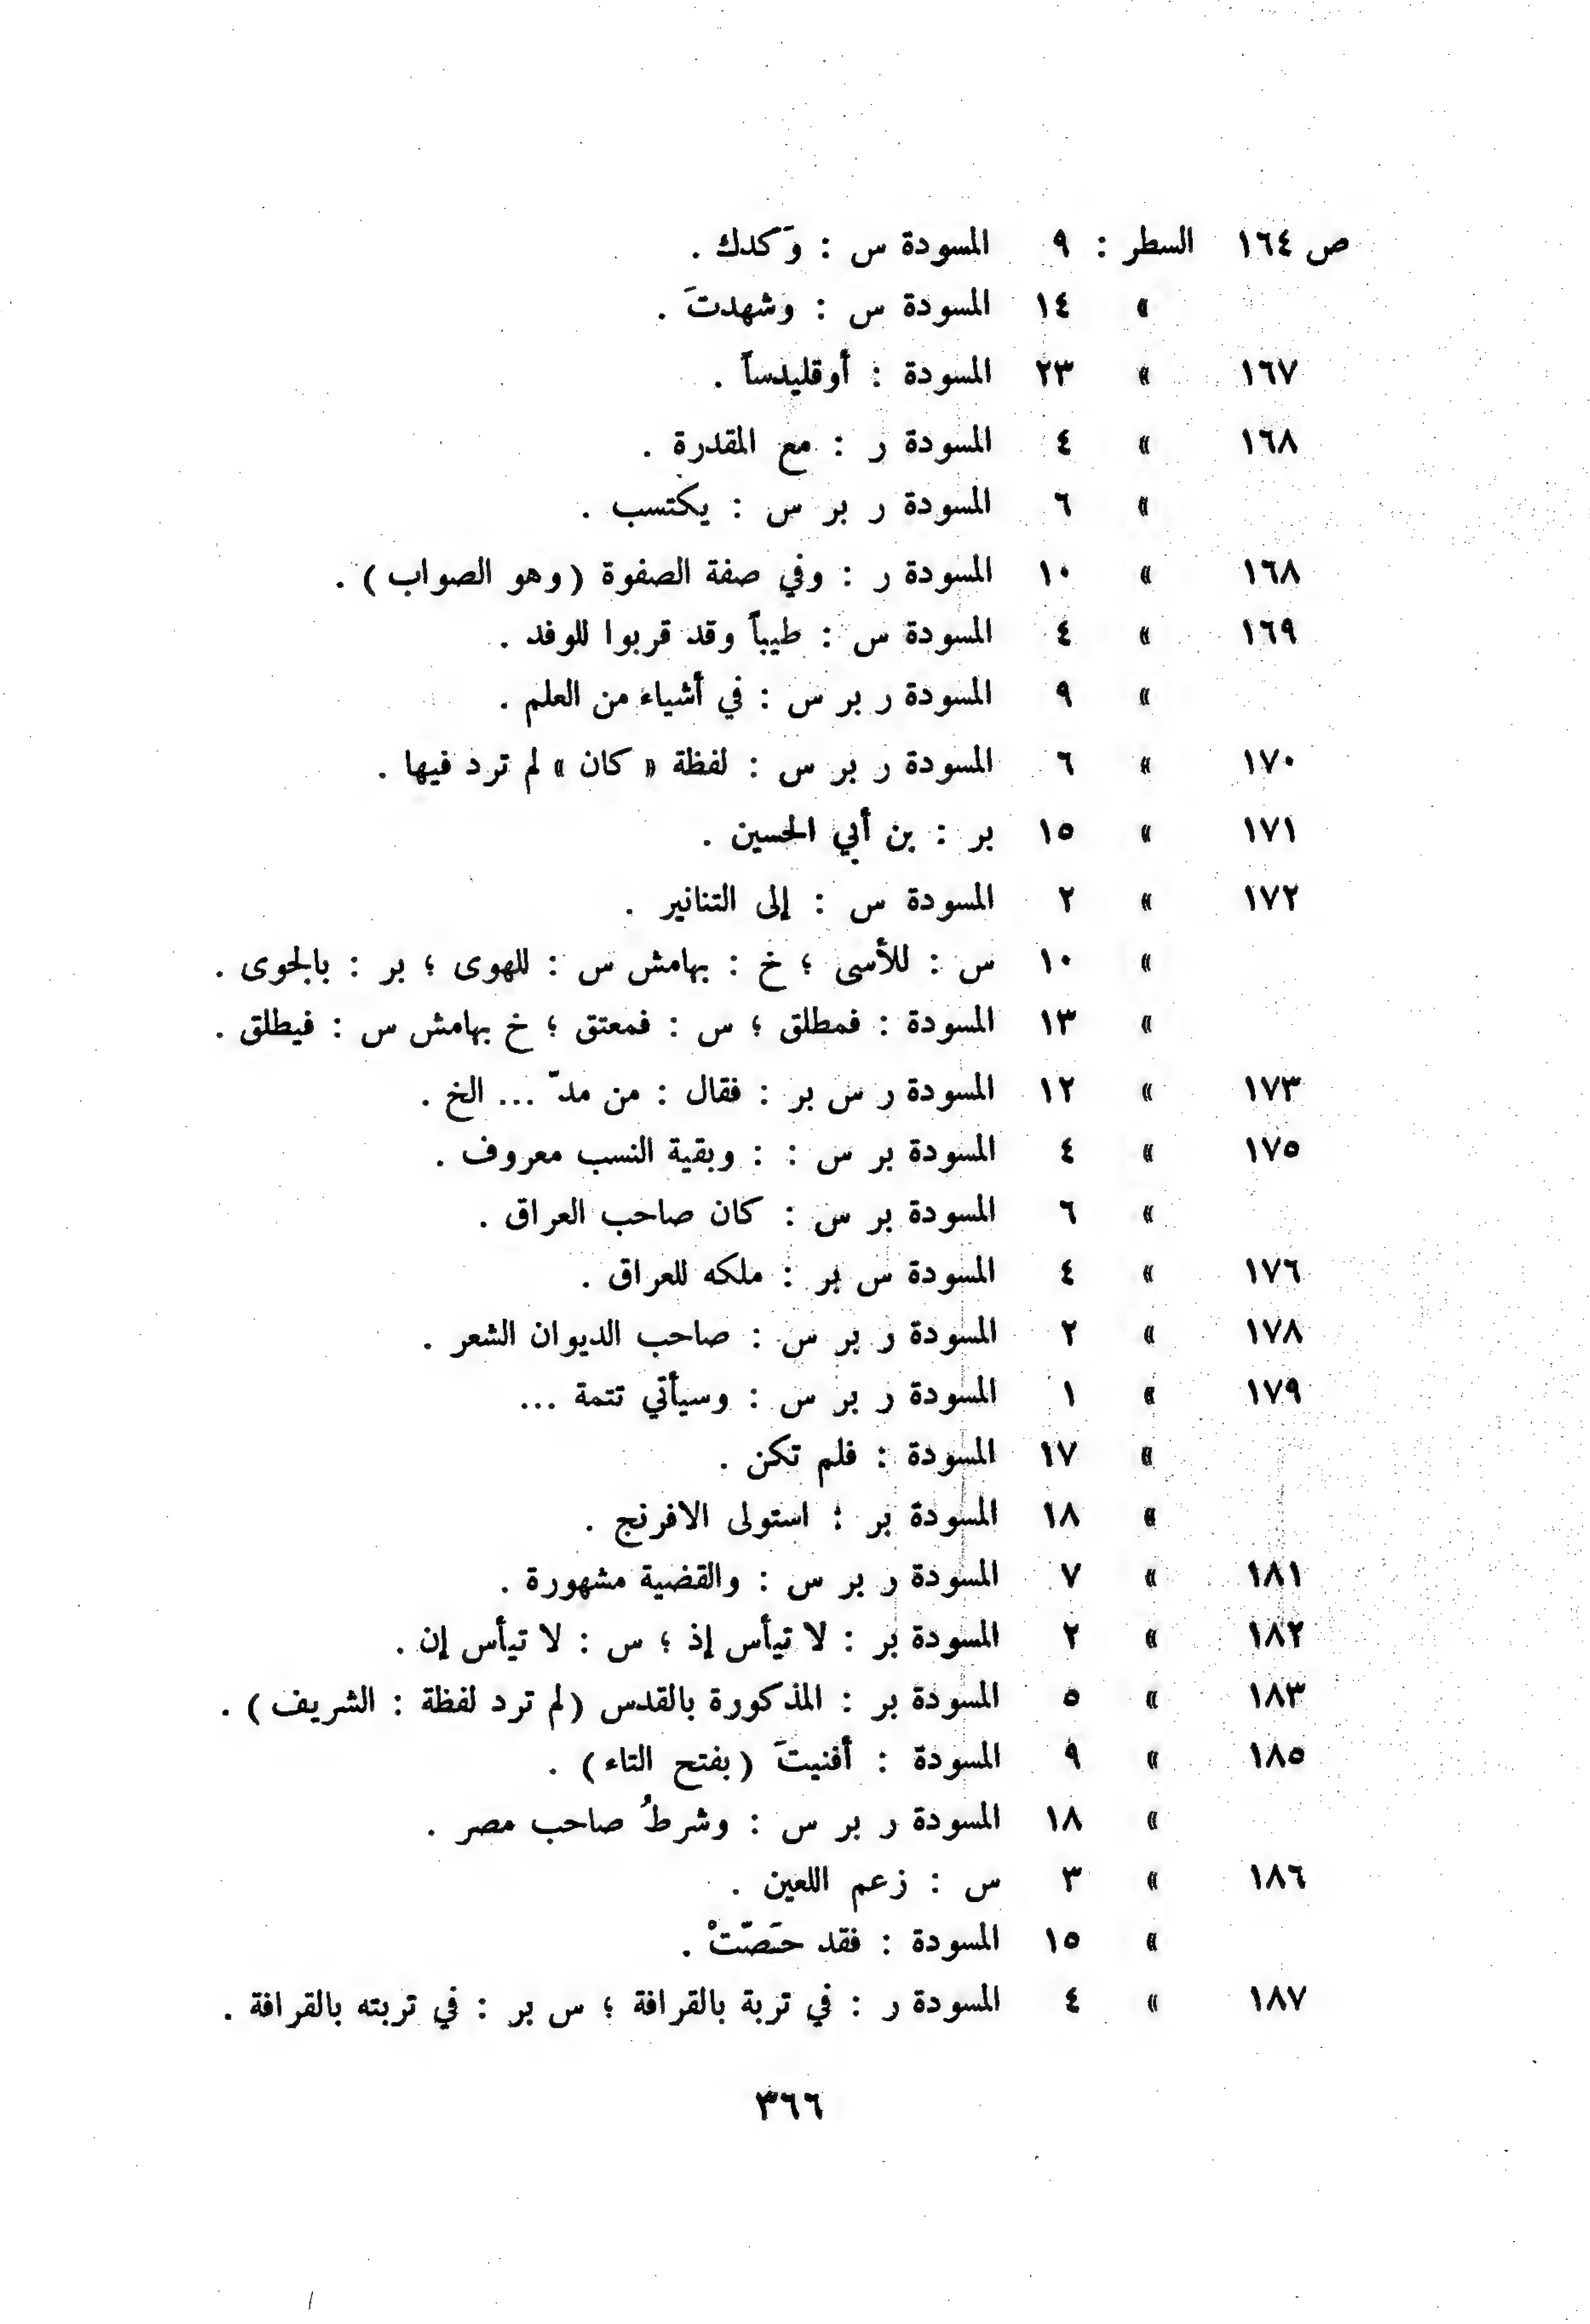 ص ١٦٤ السطر : ٩ المسودة س : وَكدك .
» ١٤ المسودة س : وشهدتَ .
١٦٧ » ٢٣ المسودة : أوقليدساً .
١٦٨ » ٤ المسودة ر : مع المقدرة .
» ٦ المسودة ر بر س : يكتسب .
١٦٨ » ١٠ المسودة ر : وفي صفة الصفوة (وهو الصواب) .
١٦٩ » ٤ المسودة س : طيباً وقد قربوا للوفد .
» ٩ المسودة ر بر س : في أشياء من العلم .
١٧٠ » ٦ المسودة ر بر س : لفظة « كان » لم ترد فيها .
١٧١ » ١٥ بر : بن أبي الحسين .
١٧٢ » ٢ المسودة س : إلى التنانير .
» ١٠ س : للأسى ؛ خ : بهامش س : للهوى ؛ بر : بالجوى .
» ١٣ المسودة : فمطلق ؛ س : فمعتق ؛ خ بهامش س : فيطلق .
١٧٣ » ١٢ المسودة ر س بر : فقال : من مدّ ... الخ .
١٧٥ » ٤ المسودة بر س : : وبقية النسب معروف .
» ٦ المسودة بر س : كان صاحب العراق .
١٧٦ » ٤ المسودة س بر : ملكه للعراق .
١٧٨ » ٢ المسودة ر بر س : صاحب الديوان الشعر .
١٧٩ » ١ المسودة ر بر س : وسيأتي تتمة ...
» ١٧ المسودة : فلم تكن .
» ١٨ المسودة بر : استولى الافرنج .
١٨١ » ٧ المسودة ر بر س : والقضية مشهورة .
١٨٢ » ٢ المسودة بر : لا تيأس إذ ؛ س : لا تيأس إن .
١٨٣ » ٥ المسودة بر : المذكورة بالقدس (لم ترد لفظة : الشريف) .
١٨٥ » ٩ المسودة : أفنيتَ (بفتح التاء) .
» ١٨ المسودة ر بر س : وشرطُ صاحب مصر .
١٨٦ » ٣ س : زعم اللعين .
» ١٥ المسودة : فقد حَصّتْ .
١٨٧ » ٤ المسودة ر : في تربة بالقرافة ؛ س بر : في تربته بالقرافة .
٣٦٦